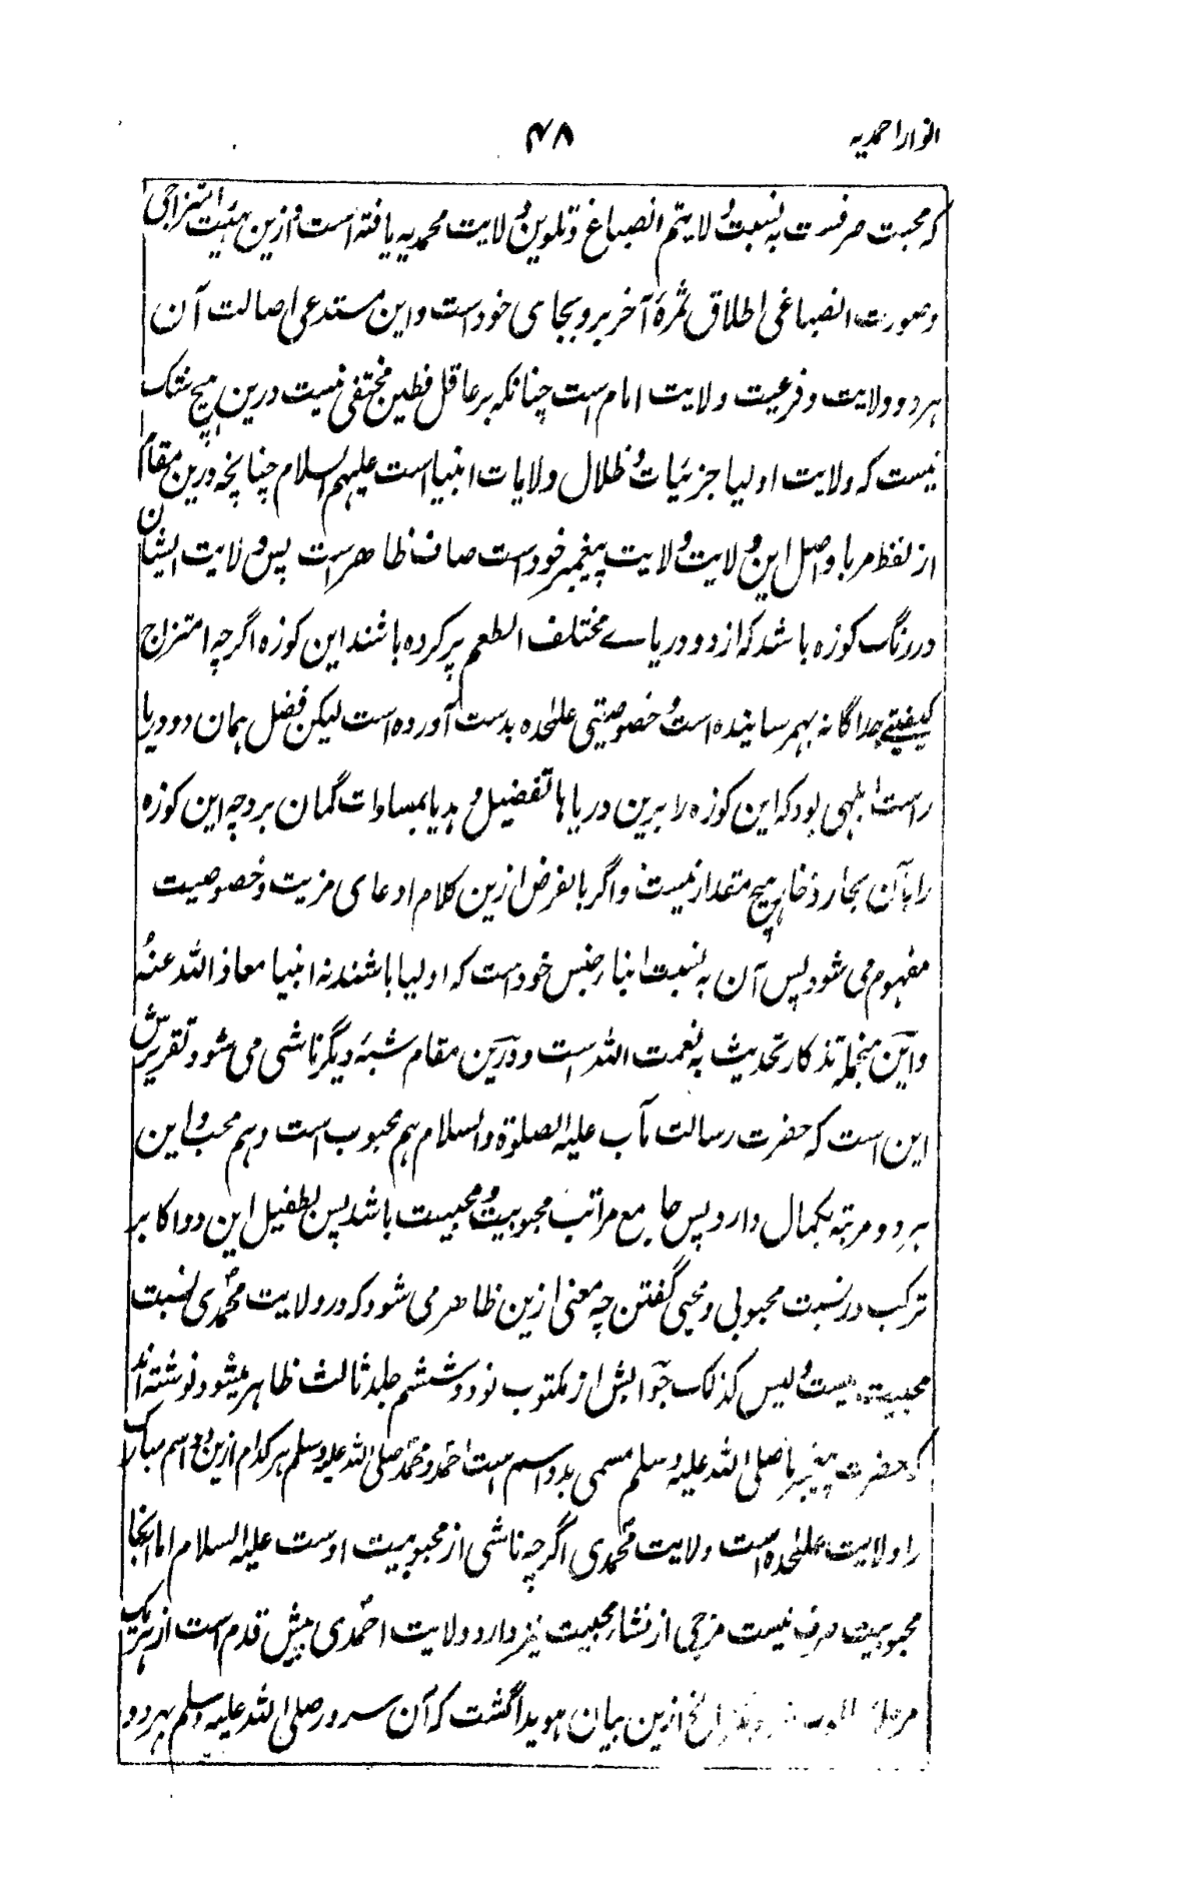 انوار احمدیه
۴۸
که محبت صرفست به نسبت ولایتم انصباغ و تلوین ولایت محمدیه یافته است و ازین هیئت امتزاجی
و صورت انصباغی اطلاق ثمرهٔ آخر برو بجای خود است و این مستدعی اصالت آن
هر دو ولایت و فرعیت ولایت امام است چنانکه بر عاقل فطین مختفی نیست درین هیچ شک
نیست که ولایت اولیا جزئیات و ظلال ولایات انبیا است علیهم السلام چنانچه درین مقام
از لفظ مربا و اصل این ولایت ولایت پیغمبر خود است صاف ظاهر است پس ولایت ایشان
در رنگ کوزه باشد که از دو دریاے مختلف الطعم پر کرده باشند این کوزه اگرچه امتزاج
کیفیتے جداگانه بهم رسانیده است و خصوصیتی علٰحده بدست آورده است لیکن فضل همان دو دریا
راست ابلهی بود که این کوزه را برین دریاها تفضیل دهد یا بمساوات گمان برد چه این کوزه
را بآن بحار ذخار هیچ مقدار نیست و اگر بالفرض ازین کلام ادعای مزیت و خصوصیت
مفهوم می شود پس آن به نسبت ابنار جنس خود است که اولیا باشند نه انبیا معاذ الله عنه
و این منجمله تذکار تحدیث به نعمت الله است و درین مقام شبهٔ دیگر ناشی می شود تقریرش
این است که حضرت رسالت مآب علیه الصلوة والسلام هم محبوب است و هم محب و این
هر دو مرتبه بکمال دارد پس جامع مراتب محبوبیت و محبیت باشد پس بطفیل این دو اکابر
ترکب در نسبت محبوبی و محبی گفتن چه معنی ازین ظاهر می شود که در ولایت محمدی نسبت
محبیت نیست و لیس کذلک جوابش از مکتوب نود و ششم جلد ثالث ظاهر میشود نوشته اند
که حضرت پیغمبر ما صلی الله علیه وسلم مسمی بدو اسم است احمد و محمد صلی الله علیه وسلم هر کدام ازین دو اسم مبارک
را ولایت علٰحده است ولایت محمدی اگرچه ناشی از محبوبیت اوست علیه السلام اما اینجا
محبوبیت صرف نیست مزجی از نشار محبیت نیز دارد ولایت احمدی پیش قدم است از هر یک
مرحله الخ ازین بیان هویدا گشت که آن سرور صلی الله علیه وسلم بهر دو